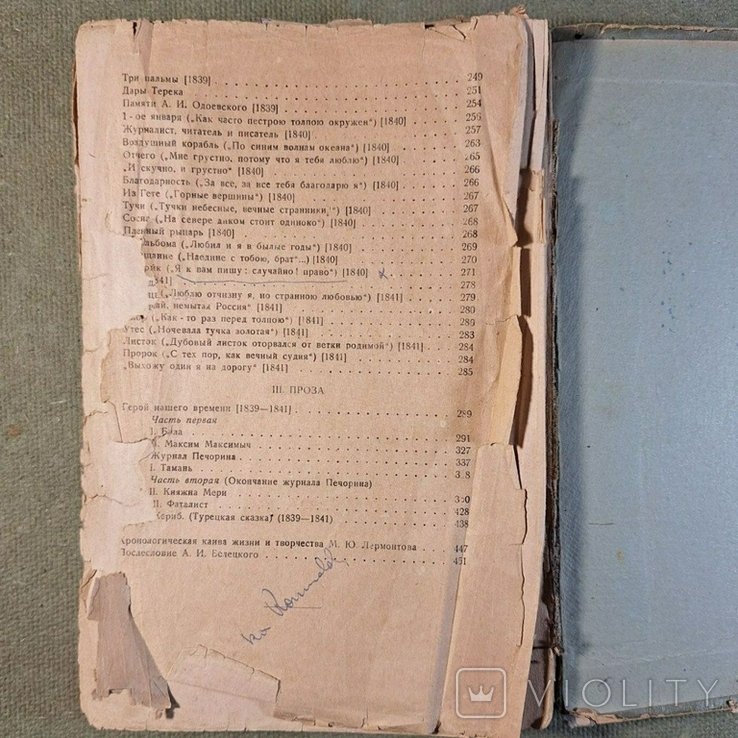 Три пальмы [1839] 249
Дары Терека 251
Памяти А. И. Одоевского [1839] 254
1-ое января („Как часто пестрою толпою окружен“) [1840] 256
Журналист, читатель и писатель [1840] 257
Воздушный корабль („По синим волнам океана“) [1840] 263
Отчего („Мне грустно, потому что я тебя люблю“) [1840] 265
„И скучно, и грустно“ [1840] 266
Благодарность („За все, за все тебя благодарю я“) [1840] 266
Из Гете („Горные вершины“) [1840] 267
Тучи („Тучки небесные, вечные странники,“) [1840] 267
Сосна („На севере диком стоит одиноко“) [1840] 268
Пленный рыцарь [1840] 268
льбома („Любил и я в былые годы“) [1840] 269
щание („Наедине с тобою, брат“...) [1840] 270
рик („Я к вам пишу: случайно! право“) [1840] 271
1841] 278
„Люблю отчизну я, но странною любовью“) [1841] 279
ай, немытая Россия“ [1841] 280
(„Как-то раз перед толпою“) [1841] 280
Утес („Ночевала тучка золотая“) [1841] 283
Листок („Дубовый листок оторвался от ветки родимой“) [1841] 284
Пророк („С тех пор, как вечный судия“) [1841] 284
„Выхожу один я на дорогу“ [1841] 285
III. ПРОЗА
Герой нашего времени [1839—1841] 289
Часть первая
I. Бэла 291
Максим Максимыч 327
Журнал Печорина 337
I. Тамань
Часть вторая (Окончание журнала Печорина)
II. Княжна Мери
II. Фаталист 428
Кериб. (Турецкая сказка) (1839—1841) 438
Хронологическая канва жизни и творчества М. Ю. Лермонтова 447
Послесловие А. И. Белецкого 451
VIOLITY